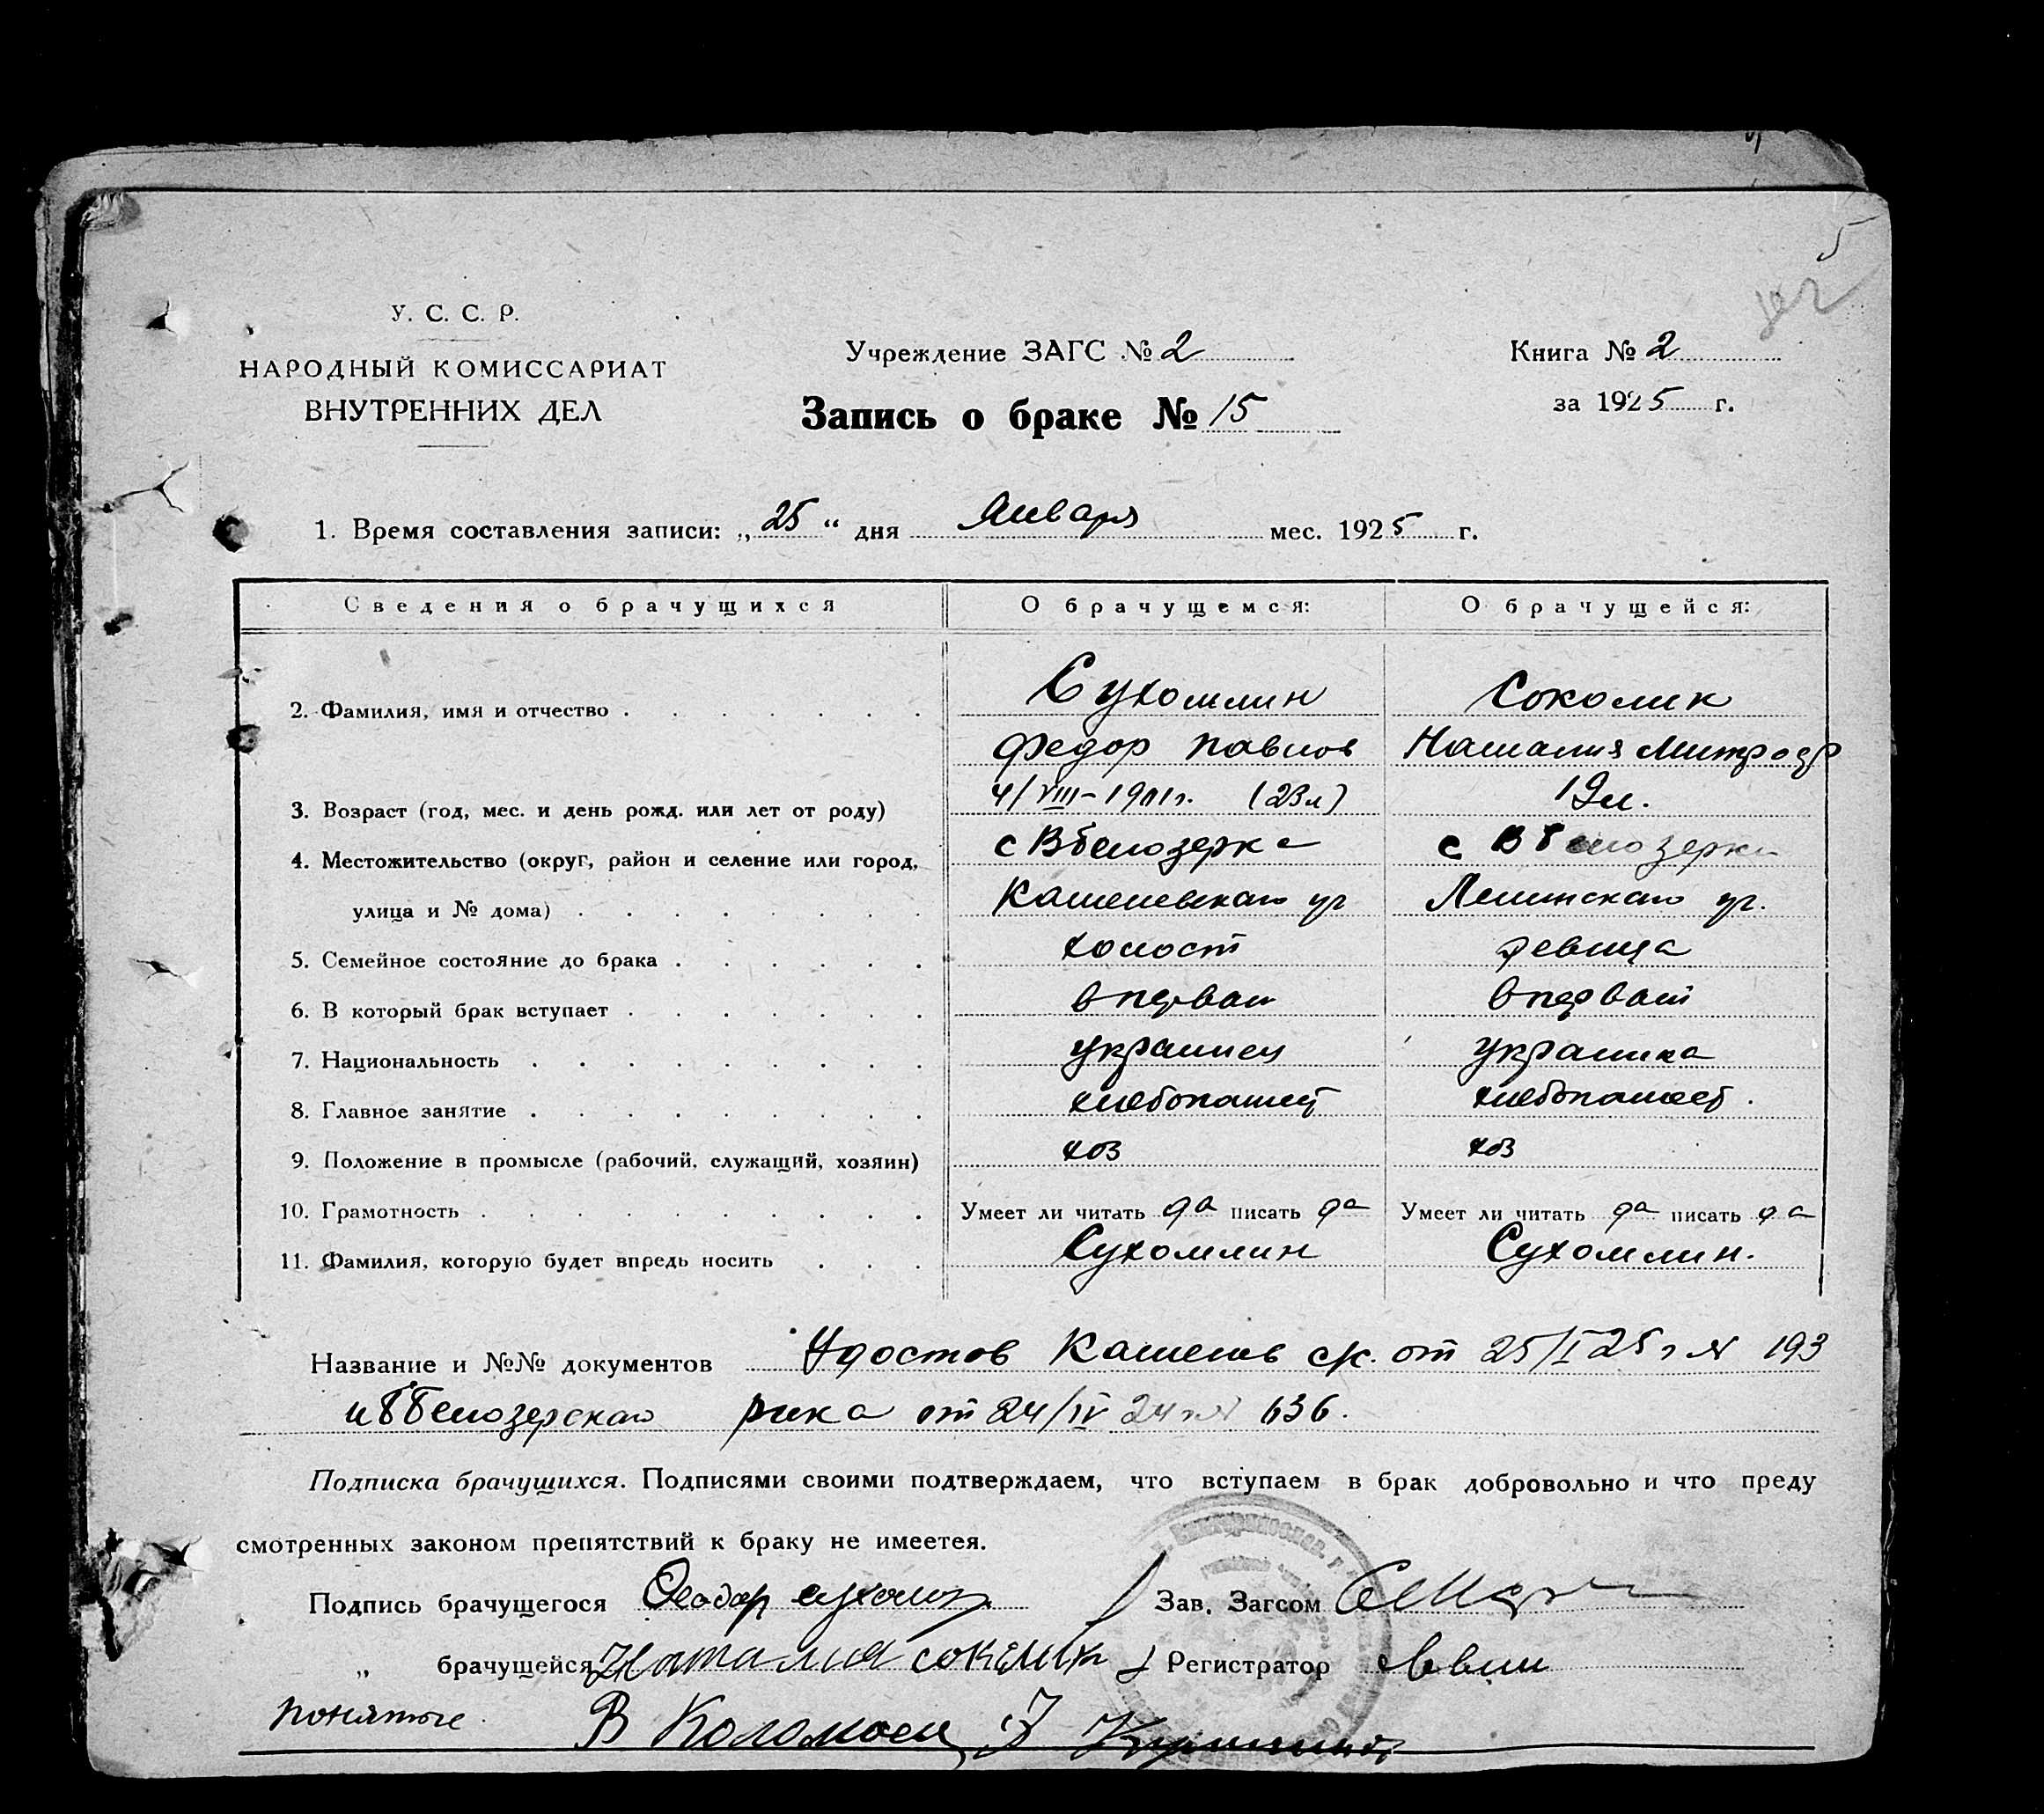 5
У. С. С. Р.
НАРОДНЫЙ КОМИССАРИАТ
ВНУТРЕННИХ ДЕЛ
Учреждение ЗАГС № 2
Запись о браке № 15
Книга № 2
за 1925 г.
1. Время составления записи: „25“ дня Января мес. 1925 г.
Сведения о брачущихся О брачущемся: О брачущейся:
2. Фамилия, имя и отчество Сухомлин Соколик
Федор Павлов Наталия Митроф
3. Возраст (год, мес. и день рожд. или лет от роду) 4/VIII-1901г. (23л) 19л.
4. Местожительство (округ, район и селение или город, с ВБелозерка с ВБелозерки
улица и № дома) Ленинскаго уч.
5. Семейное состояние до брака холост девица
6. В который брак вступает впервой впервой
7. Национальность украинец украинка
8. Главное занятие хлебопашец хлебопашец.
9. Положение в промысле (рабочий, служащий, хозяин) хоз хоз
10. Грамотность Умеет ли читать да писать да Умеет ли читать да писать да
11. Фамилия, которую будет впредь носить Сухомлин Сухомлин.
Название и №№ документов Удостов с/с. от 25/I 25г № 193
и ВБелозерскаго рика от 24/IV 24г № 636.
Подписка брачущихся. Подписями своими подтверждаем, что вступаем в брак добровольно и что преду
смотренных законом препятствий к браку не имеетея.
Подпись брачущегося Феодор Зав. Загсом
„ брачущейся Наталия соколик Регистратор
понятые В Коломоец